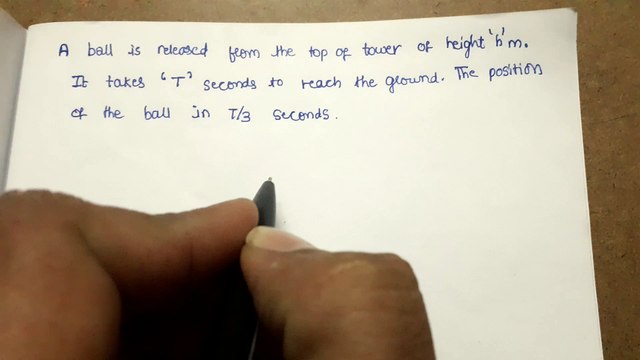 A ball is released from the top of tower of height 'h' m.
It takes 'T' seconds to reach the ground. The position
of the ball in T/3 seconds.